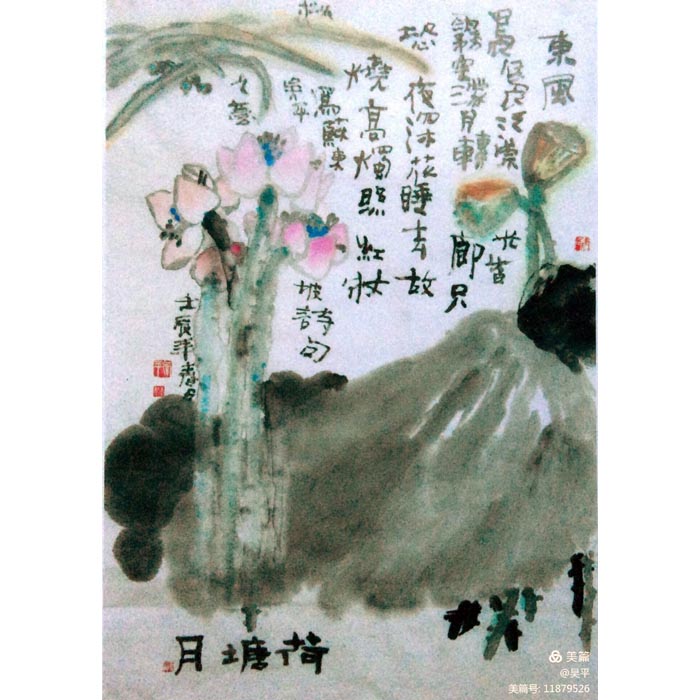 東風
霧空濛月轉
廊只
恐夜深花睡去故
燒高燭照紅妝
寫蘇東
坡詩句
吳平
壬辰年春月
荷塘月
美篇
@吴平
美篇号: 11879526